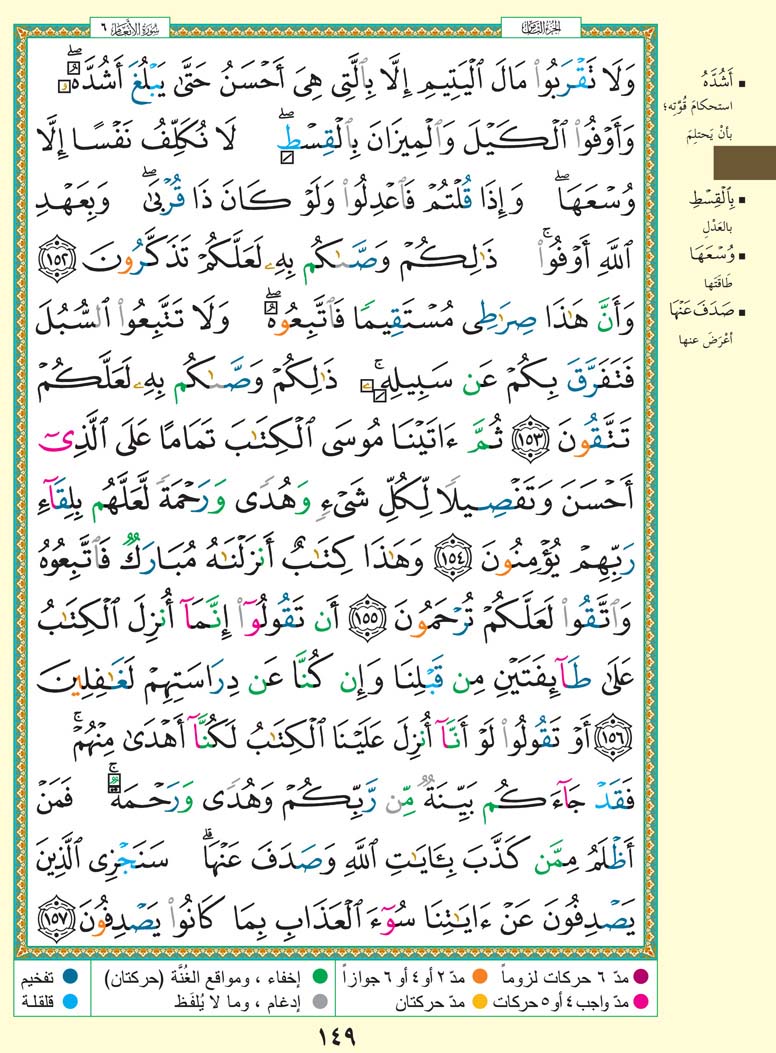 سُورَةُ الأَنْعَامِ ٦
الجُزءُ الثَّامِنُ
وَلَا تَقْرَبُوا۟ مَالَ ٱلْيَتِيمِ إِلَّا بِٱلَّتِى هِىَ أَحْسَنُ حَتَّىٰ يَبْلُغَ أَشُدَّهُۥ ۖ
وَأَوْفُوا۟ ٱلْكَيْلَ وَٱلْمِيزَانَ بِٱلْقِسْطِ ۖ لَا نُكَلِّفُ نَفْسًا إِلَّا
وُسْعَهَا ۖ وَإِذَا قُلْتُمْ فَٱعْدِلُوا۟ وَلَوْ كَانَ ذَا قُرْبَىٰ ۖ وَبِعَهْدِ
ٱللَّهِ أَوْفُوا۟ ۚ ذَٰلِكُمْ وَصَّىٰكُم بِهِۦ لَعَلَّكُمْ تَذَكَّرُونَ ١٥٢
وَأَنَّ هَٰذَا صِرَٰطِى مُسْتَقِيمًا فَٱتَّبِعُوهُ ۖ وَلَا تَتَّبِعُوا۟ ٱلسُّبُلَ
فَتَفَرَّقَ بِكُمْ عَن سَبِيلِهِۦ ۚ ذَٰلِكُمْ وَصَّىٰكُم بِهِۦ لَعَلَّكُمْ
تَتَّقُونَ ١٥٣ ثُمَّ ءَاتَيْنَا مُوسَى ٱلْكِتَٰبَ تَمَامًا عَلَى ٱلَّذِىٓ
أَحْسَنَ وَتَفْصِيلًا لِّكُلِّ شَىْءٍ وَهُدًى وَرَحْمَةً لَّعَلَّهُم بِلِقَآءِ
رَبِّهِمْ يُؤْمِنُونَ ١٥٤ وَهَٰذَا كِتَٰبٌ أَنزَلْنَٰهُ مُبَارَكٌ فَٱتَّبِعُوهُ
وَٱتَّقُوا۟ لَعَلَّكُمْ تُرْحَمُونَ ١٥٥ أَن تَقُولُوٓا۟ إِنَّمَآ أُنزِلَ ٱلْكِتَٰبُ
عَلَىٰ طَآئِفَتَيْنِ مِن قَبْلِنَا وَإِن كُنَّا عَن دِرَاسَتِهِمْ لَغَٰفِلِينَ
١٥٦ أَوْ تَقُولُوا۟ لَوْ أَنَّآ أُنزِلَ عَلَيْنَا ٱلْكِتَٰبُ لَكُنَّآ أَهْدَىٰ مِنْهُمْ ۚ
فَقَدْ جَآءَكُم بَيِّنَةٌ مِّن رَّبِّكُمْ وَهُدًى وَرَحْمَةٌ ۚ فَمَنْ
أَظْلَمُ مِمَّن كَذَّبَ بِـَٔايَٰتِ ٱللَّهِ وَصَدَفَ عَنْهَا ۗ سَنَجْزِى ٱلَّذِينَ
يَصْدِفُونَ عَنْ ءَايَٰتِنَا سُوٓءَ ٱلْعَذَابِ بِمَا كَانُوا۟ يَصْدِفُونَ ١٥٧
▪ أَشُدَّهُ
استحكامَ قُوَّتِه؛
بأنْ يَحتلِمَ
▪ بِٱلْقِسْطِ
بالعَدْلِ
▪ وُسْعَهَا
طَاقَتَها
▪ صَدَفَ عَنْهَا
أعْرَضَ عنها
مدّ ٦ حركات لزوماً مدّ ٢ أو ٤ أو ٦ جوازاً إخفاء ، ومواقع الغُنَّة (حركتان) تفخيم
مدّ واجب ٤ أو ٥ حركات مدّ حركتان إدغام ، وما لا يُلفَظ قلقلة
١٤٩